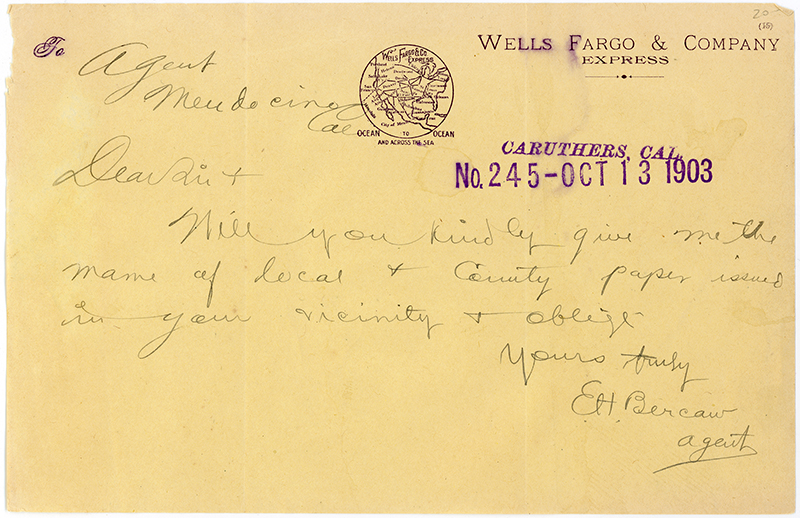 20-
(15)
To
WELLS FARGO & COMPANY
EXPRESS
WELLS FARGO & CO
EXPRESS
OCEAN TO OCEAN
AND ACROSS THE SEA
Agent
Mendocino
Cal
CARUTHERS, CAL.
No. 245-OCT 13 1903
Dear Sir +
Will you kindly give me the
name of local + County paper issued
in your vicinity + oblige
Yours truly
EH Bercaw
agent